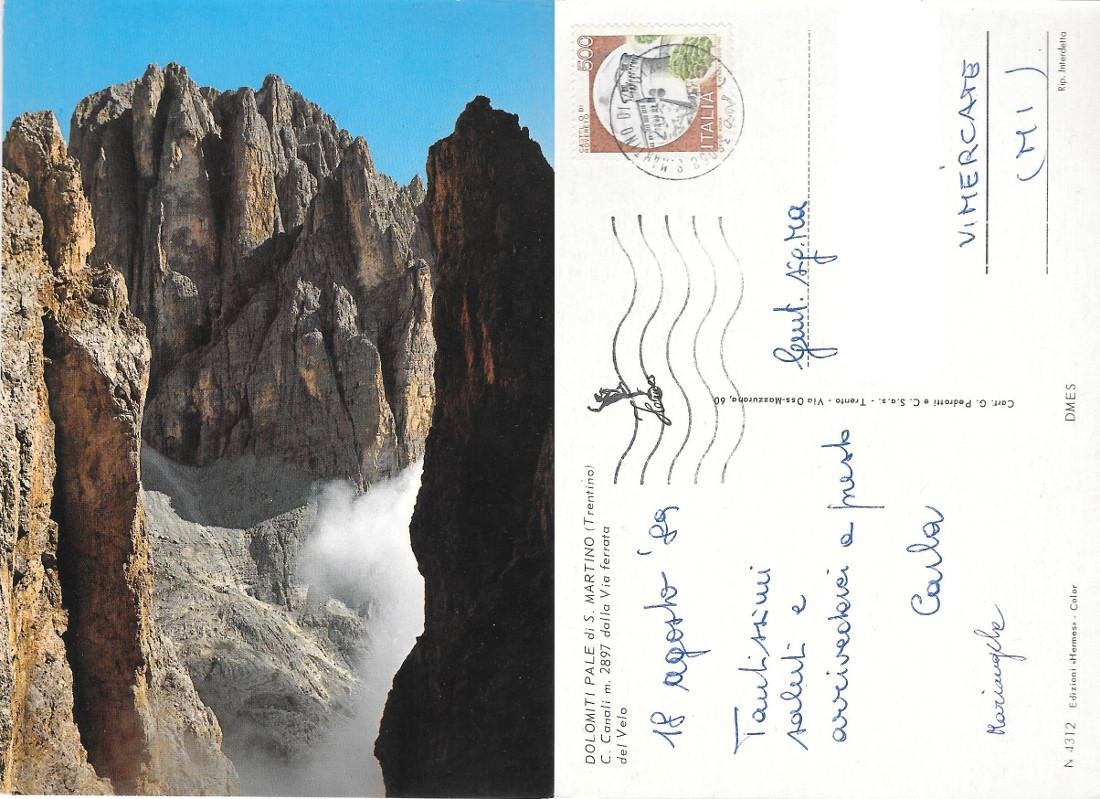 DOLOMITI PALE di S. MARTINO (Trentino)
C. Canali m. 2897 dalla Via ferrata
del Velo
18 agosto '89
Tantissimi
saluti e
arrivederci a presto
Carla
N 4312 Edizioni «Hermes» - Color
DMES
Cart. G. Pedrotti e C. S.a.s. - Trento - Via Oss-Mazzurana, 60
Hermes
500
ITALIA
CASTELLO DI
ROVERETO
S. MARTINO DI
Gent. sig.na
VIMERCATE
(MI)
Rip. Interdetta